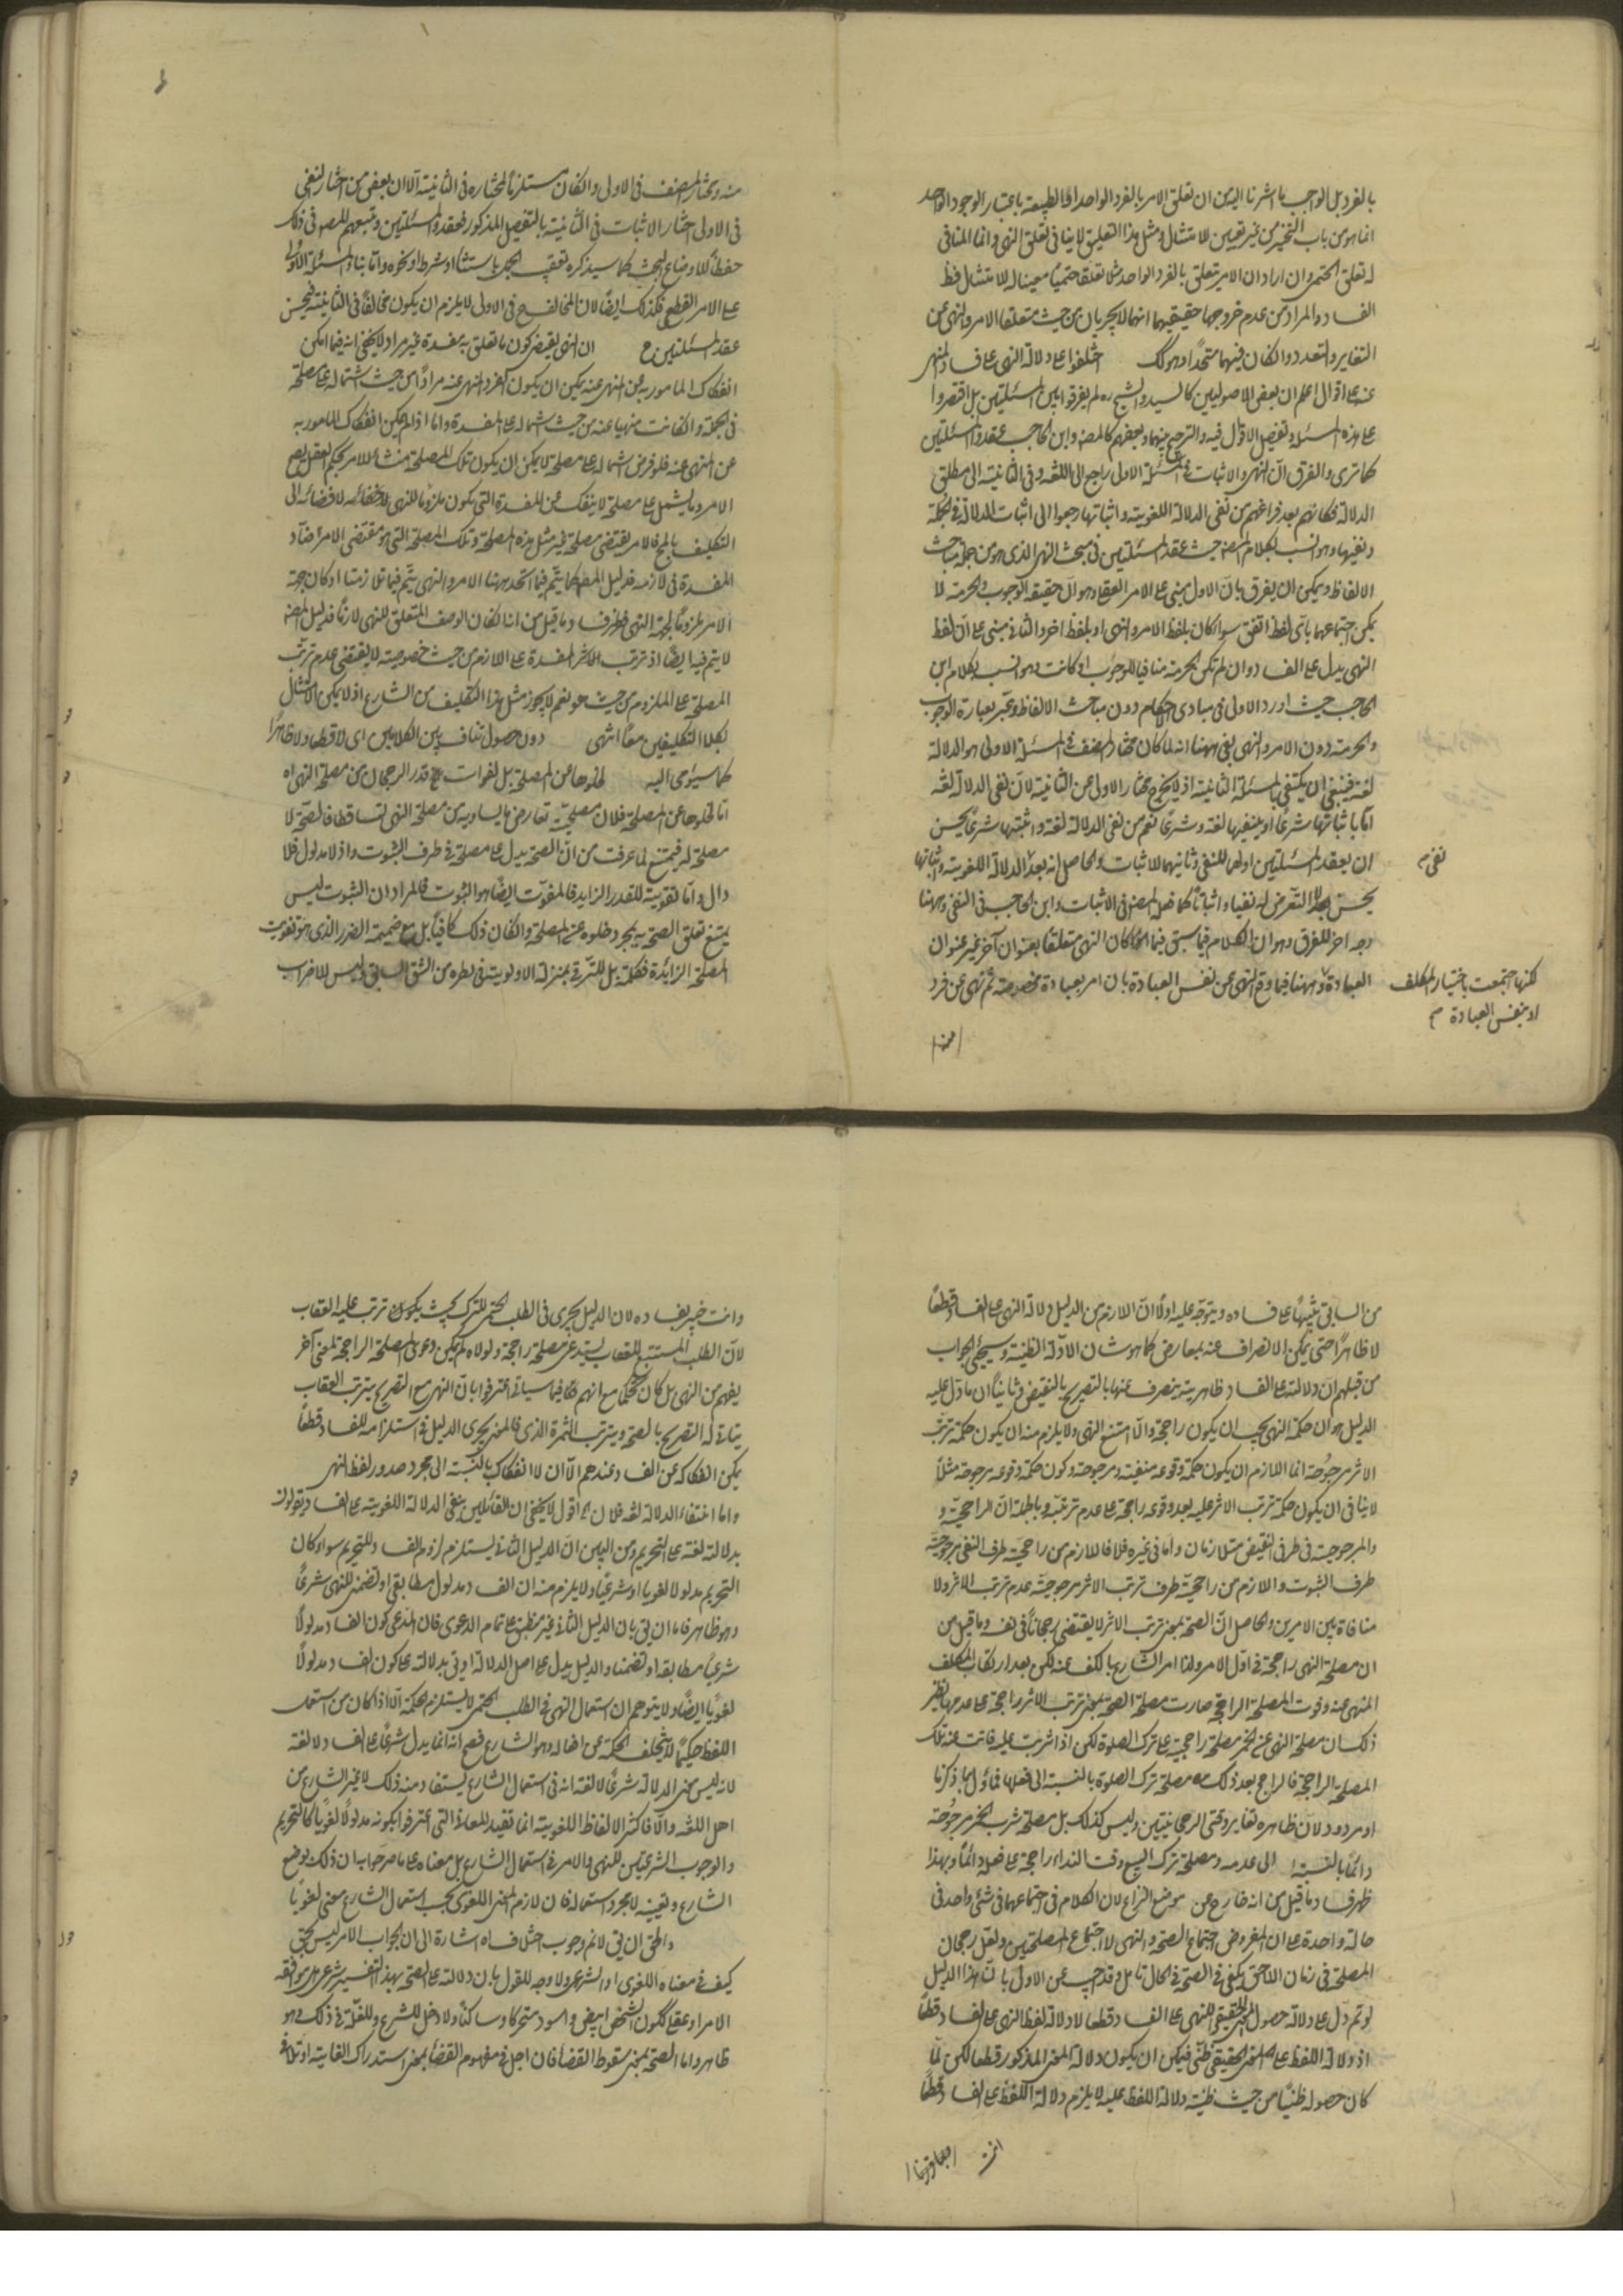 بالفرد بل الواجب ما اشرنا اليه من ان تعلق الامر بالفرد الواحد او الطبيعة باعتبار الوجود الواحد
انما هو من باب التخيير من غير تعيين للامتثال ومثل هذا التعليق لا ينافى تعلق النهى وانما المنافى
له تعلق الحتمى وان اراد ان الامر يتعلق بالفرد الواحد مثلا تعلقا حتميا معينا له للامتثال فظ
الفساد والمراد من عدم خروجها حقيقيهما انهما لا يجريان من حيث متعلقا الامر والنهى عن
التغاير والتعدد وان كان فيهما متحدا وهو لك اختلفوا على دلالة النهى على فساد المنهى
عنه على اقوال اعلم ان بعض الاصوليين كالسيد والشيخ ره لم يفرقوا بين المسئلتين بل اقتصروا
على هذه المسئلة وتفصيل الاقوال فيه والترجيح بينهما وبعضهم كالمصنف وابن الحاجب عقدوا مسئلتين
كما ترى والفرق ان النهى والاثبات فى المسئلة الاولى راجع الى اللغة وفى الثانية الى مطلق
الدلالة فكانهم بعد فراغهم من نفى الدلالة اللغوية واثباتها رجعوا الى اثبات الدلالة فى الجملة
ونفيها وهو انسب بكلام المصنف حيث عقد المسئلتين فى مبحث النهى الذى هو من جملة مباحث
الالفاظ ويمكن ان يفرق بان الاول مبنى على الامر العقلى وهو ان حقيقة الوجوب والحرمة لا
يمكن اجتماعهما باى لفظ اتفق سواء كان بلفظ الامر والنهى او بلفظ اخر والثانى مبنى على ان لفظ
النهى يدل على الفساد وان لم تكن الحرمة منافيا للوجوب او كانت وهو انسب بكلام ابن
الحاجب حيث اورد الاولى فى مبادى الاحكام دون مباحث الالفاظ وعبر بعبارة الوجوب
والحرمة دون الامر والنهى بقى ههنا انه لما كان مختار المصنف فى المسئلة الاولى هو الدلالة
لغة فينبغى ان يكتفى بالمسئلة الثانية اذ لا يخرج مختار الاولى عن الثانية لان نفى الدلالة لغة
اما باثباتها شرعا او ينفيها لغة وشرعا نعم من نفى الدلالة لغة واثبتها شرعا يحسن
ان يعقد المسئلتين اولهما للنفى وثانيهما للاثبات والحاصل انه بعد الدلالة اللغوية واثباتها
نفى م
يحسن التعرض له نفيا واثباتا كما فعل المصنف فى الاثبات وابن الحاجب فى النفى وههنا
وجه اخر للفرق وهو ان الكلام فيما سبق فيما كان النهى متعلقا بعنوان آخر غير عنوان
العبادة وههنا فيما وقع النهى عن نفس العبادة بان امر بعبادة مخصوصة ثم نهى عن فرد
لكنها اجتمعت باختيار المكلف
او بنفس العبادة م
منه
منه ومختار المصنف فى الاولى وان كان مستلزما لمختاره فى الثانية الا ان بعض من اختار النفى
فى الاولى اختار الاثبات فى الثانية بالتفصيل المذكور فعقدوا مسئلتين وتبعهم المصنف فى ذلك
حفظا لاوضاع البحث كما سيذكره تعقيب الجمل باستثناء او شرط او نحوه واما بناء المسئلة الاولى
على الامر القطعى فكذلك ايضا لان المخالف فى الاولى لا يلزم ان يكون مخالفا فى الثانية فيحسن
عقد المسئلتين ح ان النهى يقتضى كون ما تعلق به مفسدة غير مراد لا يخفى انه فيما امكن
انفكاك المامور به عن المنهى عنه يمكن ان يكون الفرد المنهى عنه مرادا من حيث اشتماله على مصلحة
فى الجملة وان كانت منهيا عنه من حيث شماله على المفسدة واما اذا لم يمكن انفكاك المامور به
عن المنهى عنه فلو فرض شماله على مصلحة لا يمكن ان يكون تلك المصلحة منشأ للامر بحكم العقل بقبح
الامر وما يشمل على مصلحة لا ينفك عن المفسدة التى يكون ملزوما للنهى لاقتضائه لافضائه الى
التكليف بالمح فالامر يقتضى مصلحة غير مثل هذه المصلحة وتلك المصلحة التى هو مقتضى الامر تضاد
المفسدة فى لازمه فدليل المصنف كما يتم فيما اتحد جهتا الامر والنهى يتم فيما تلازمتا او كان جهة
الامر ملزوما لجهة النهى فظهر فساد ما قيل من انه ان كان الوصف المتعلق للنهى لازما فدليل المصنف
لا يتم فيه ايضا اذ ترتب الاثر المفسدة على اللازم من حيث خصوصيته لا يقتضى عدم ترتب
المصلحة على الملزوم من حيث هو نعم لا يجوز مثل هذا التكليف من الشارع اذ لا يمكن الامتثال
بكلا التكليفين معا انتهى دون حصول تناف بين الكلامين اى لا قطعا ولا ظاهرا
كما سيؤمى اليه لخلوها عن المصلحة بل لفوات قدر الرجحان من مصلحة النهى اه
اما لخلوها عن المصلحة فلان مصلحته تعارض ما يساويه من مصلحة النهى تساقطا فالصحة لا
مصلحة له فيمتنع لما عرفت من ان الصحة يدل على مصلحة فى طرف الثبوت واذ لا مدلول فلا
دال واما تقوية للقدر الزايد فالمفوت ايضا هو الثبوت فالمراد ان الثبوت ليس
يمتنع تعلق الصحة به بمجرد خلوه عن المصلحة وان كان ذلك كافيا بل مع ضميمة الضرر الذى هو تفويت
المصلحة الزائدة فكلمة بل للترقى بمنزلة الاولوية فى نظره من الشق السابق وليس للاضراب
من السابق تنبيها على فساده ويتوجه عليه اولا ان اللازم من الدليل دلالة النهى على الفساد قطعا
لا ظاهرا حتى يمكن الانصراف عنه بمعارض كما هو شان الادلة الظنية وسيجئ الجواب
من قبلهم ان دلالته على الفساد ظاهرية ينصرف عنها بالتصريح بالنقيض وثانيا ان ما دل عليه
الدليل هو ان حكمة النهى يجب ان يكون راجحة والا امتنع النهى ولا يلزم منه ان يكون حكمة ترتب
الاثر مرجوحة انما اللازم ان يكون حكمة وقوعه منفية ومرجوحة وكون حكمة وقوعه مرجوحة مثلا
لا ينافى ان يكون حكمة ترتب الاثر عليه بعد وقوعه راجحة على عدم ترتبه وبالجملة ان الراجحية و
والمرجوحية فى طرفى النقيض متلازمان واما فى غيره فلا فاللازم من راجحية طرف النفى مرجوحية
طرف الثبوت واللازم من راجحية طرف ترتب الاثر مرجوحية عدم ترتب الاثر ولا
منافاة بين الامرين والحاصل ان الصحة بمعنى ترتب الاثر لا يقتضى رجحانا فى نفسه وما قيل من
ان مصلحة النهى راجحة فى اول الامر ولذا امر الشارع بالكف عنه لكن بعد ارتكاب المكلف
المنهى عنه وفوت المصلحة الراجحة صارت مصلحة الصحة بمعنى ترتب الاثر راجحة على عدمها نظير
ذلك ان مصلحة النهى عن الخمر مصلحة راجحية على ترك الصلوة لكن اذا شربت عليه فاتت عنه تلك
المصلحة الراجحة فالراجح بعد ذلك مصلحة ترك الصلوة بالنسبة الى فعلها فماؤل بما ذكرنا
او مردود لان ظاهره تغاير وقتى الرجحانيتين وليس كذلك بل مصلحة شرب الخمر مرجوحة
دائما بالنسبة الى عدمه ومصلحة ترك البيع وقت النداء راجحة على فعله دائما وبهذا
ظهر فساد ما قيل من انه خارج عن موضع النزاع لان الكلام فى اجتماعهما فى شئ واحد فى
حالة واحدة على ان المفروض اجتماع الصحة والنهى لا اجتماع المصلحتين وتعقل رجحان
المصلحة فى زمان اللاحق يكفى فى الصحة فى الحال تامل وقد اجيب عن الاول بان هذا الدليل
لو تم دل على دلالة حصول المعنى الحقيقى للنهى على الفساد قطعا لا دلالة لفظ النهى على الفساد قطعا
اذ دلالة اللفظ على المعنى الحقيقى ظنى فيمكن ان يكون دلالة المعنى المذكور قطعيا لكن لما
كان حصوله ظنيا من حيث ظنية دلالة اللفظ عليه لا يلزم دلالة اللفظ على الفساد قطعا
وانت خبير بفساده لان الدليل يجرى فى الطلب الحتمى للترك بحيث يكون ترتب عليه العقاب
لان الطلب المستتبع للعقاب يستدعى مصلحة راجحة ولولاه لم يمكن دعوى المصلحة الراجحة لمعنى آخر
يفهم من النهى بل كان تحكما مع انهم فيما سياتى اعترفوا بان النهى مع التصريح بترتب العقاب
يتاتى له التصريح بالصحة وبترتب الثمرة الذى فالمعنى يجرى الدليل فى استلزامه للفساد قطعا
يمكن انفكاكه عن الفساد عندهم الا ان لا انفكاك بالنسبة الى مجرد صدور لفظ النهى
واما انتفاء الدلالة لغة فلان اه اقول لا يخفى ان القائلين بنفى الدلالة اللغوية على الفساد يقولون
بدلالته لغة على التحريم ومن البين ان الدليل الثانى يستلزم لزوم الفساد للتحريم سواء كان
التحريم مدلولا لغويا او شرعيا ولا يلزم منه ان الفساد مدلول مطابقى او تضمنى للنهى شرعا
وهو ظاهر فاما ان يق بان الدليل الثانى غير منطبق على تمام الدعوى فان المدعى كون الفساد مدلولا
شرعيا مطابقة او تضمنا والدليل يدل على اصل الدلالة او يق بدلالته على كون الفساد مدلولا
لغويا ايضا ولا يتوهم ان استعمال النهى فى الطلب الحتمى لا يستلزم الحكمة الا اذا كان من استعمل
اللفظ حكيما لا يتخلف الحكمة عن افعاله وهو الشارع فصح انه انما يدل شرعا على الفساد لا لغة
لانه ليس معنى الدلالة شرعا لا لغة انه فى استعمال الشارع يستفاد منه ذلك لا غير الشارع من
اهل اللغة والا فاكثر الالفاظ اللغوية انما تفيد للمعانى التى اعترفوا بكونه مدلولا لغويا كالتحريم
والوجوب الشرعيين للنهى والامر فى استعمال الشارع بل معناه على ما صرحوا به ان ذلك بوضع
الشارع وتعيينه لا بمجرد استعماله فان لازم المعنى اللغوى بحسب استعمال الشارع معنى لغويا
والحق ان يق لانم وجوب اختلاف اه اشارة الى ان الجواب الامر ليس بحق
كيف فى معناه اللغوى او الشرعى ولا وجه للقول بان دلالته على الصحة بهذا التفسير شرعى بل موافقة
الامر اى عقلى ككون الشخص ابيض واسود متحركا وساكنا ولا دخل للشرع واللغة فى ذلك وهو
ظاهر واما الصحة بمعنى سقوط القضاء فان اجل فى مفهوم القضاء بمعنى استدراك الغاية او تلافى